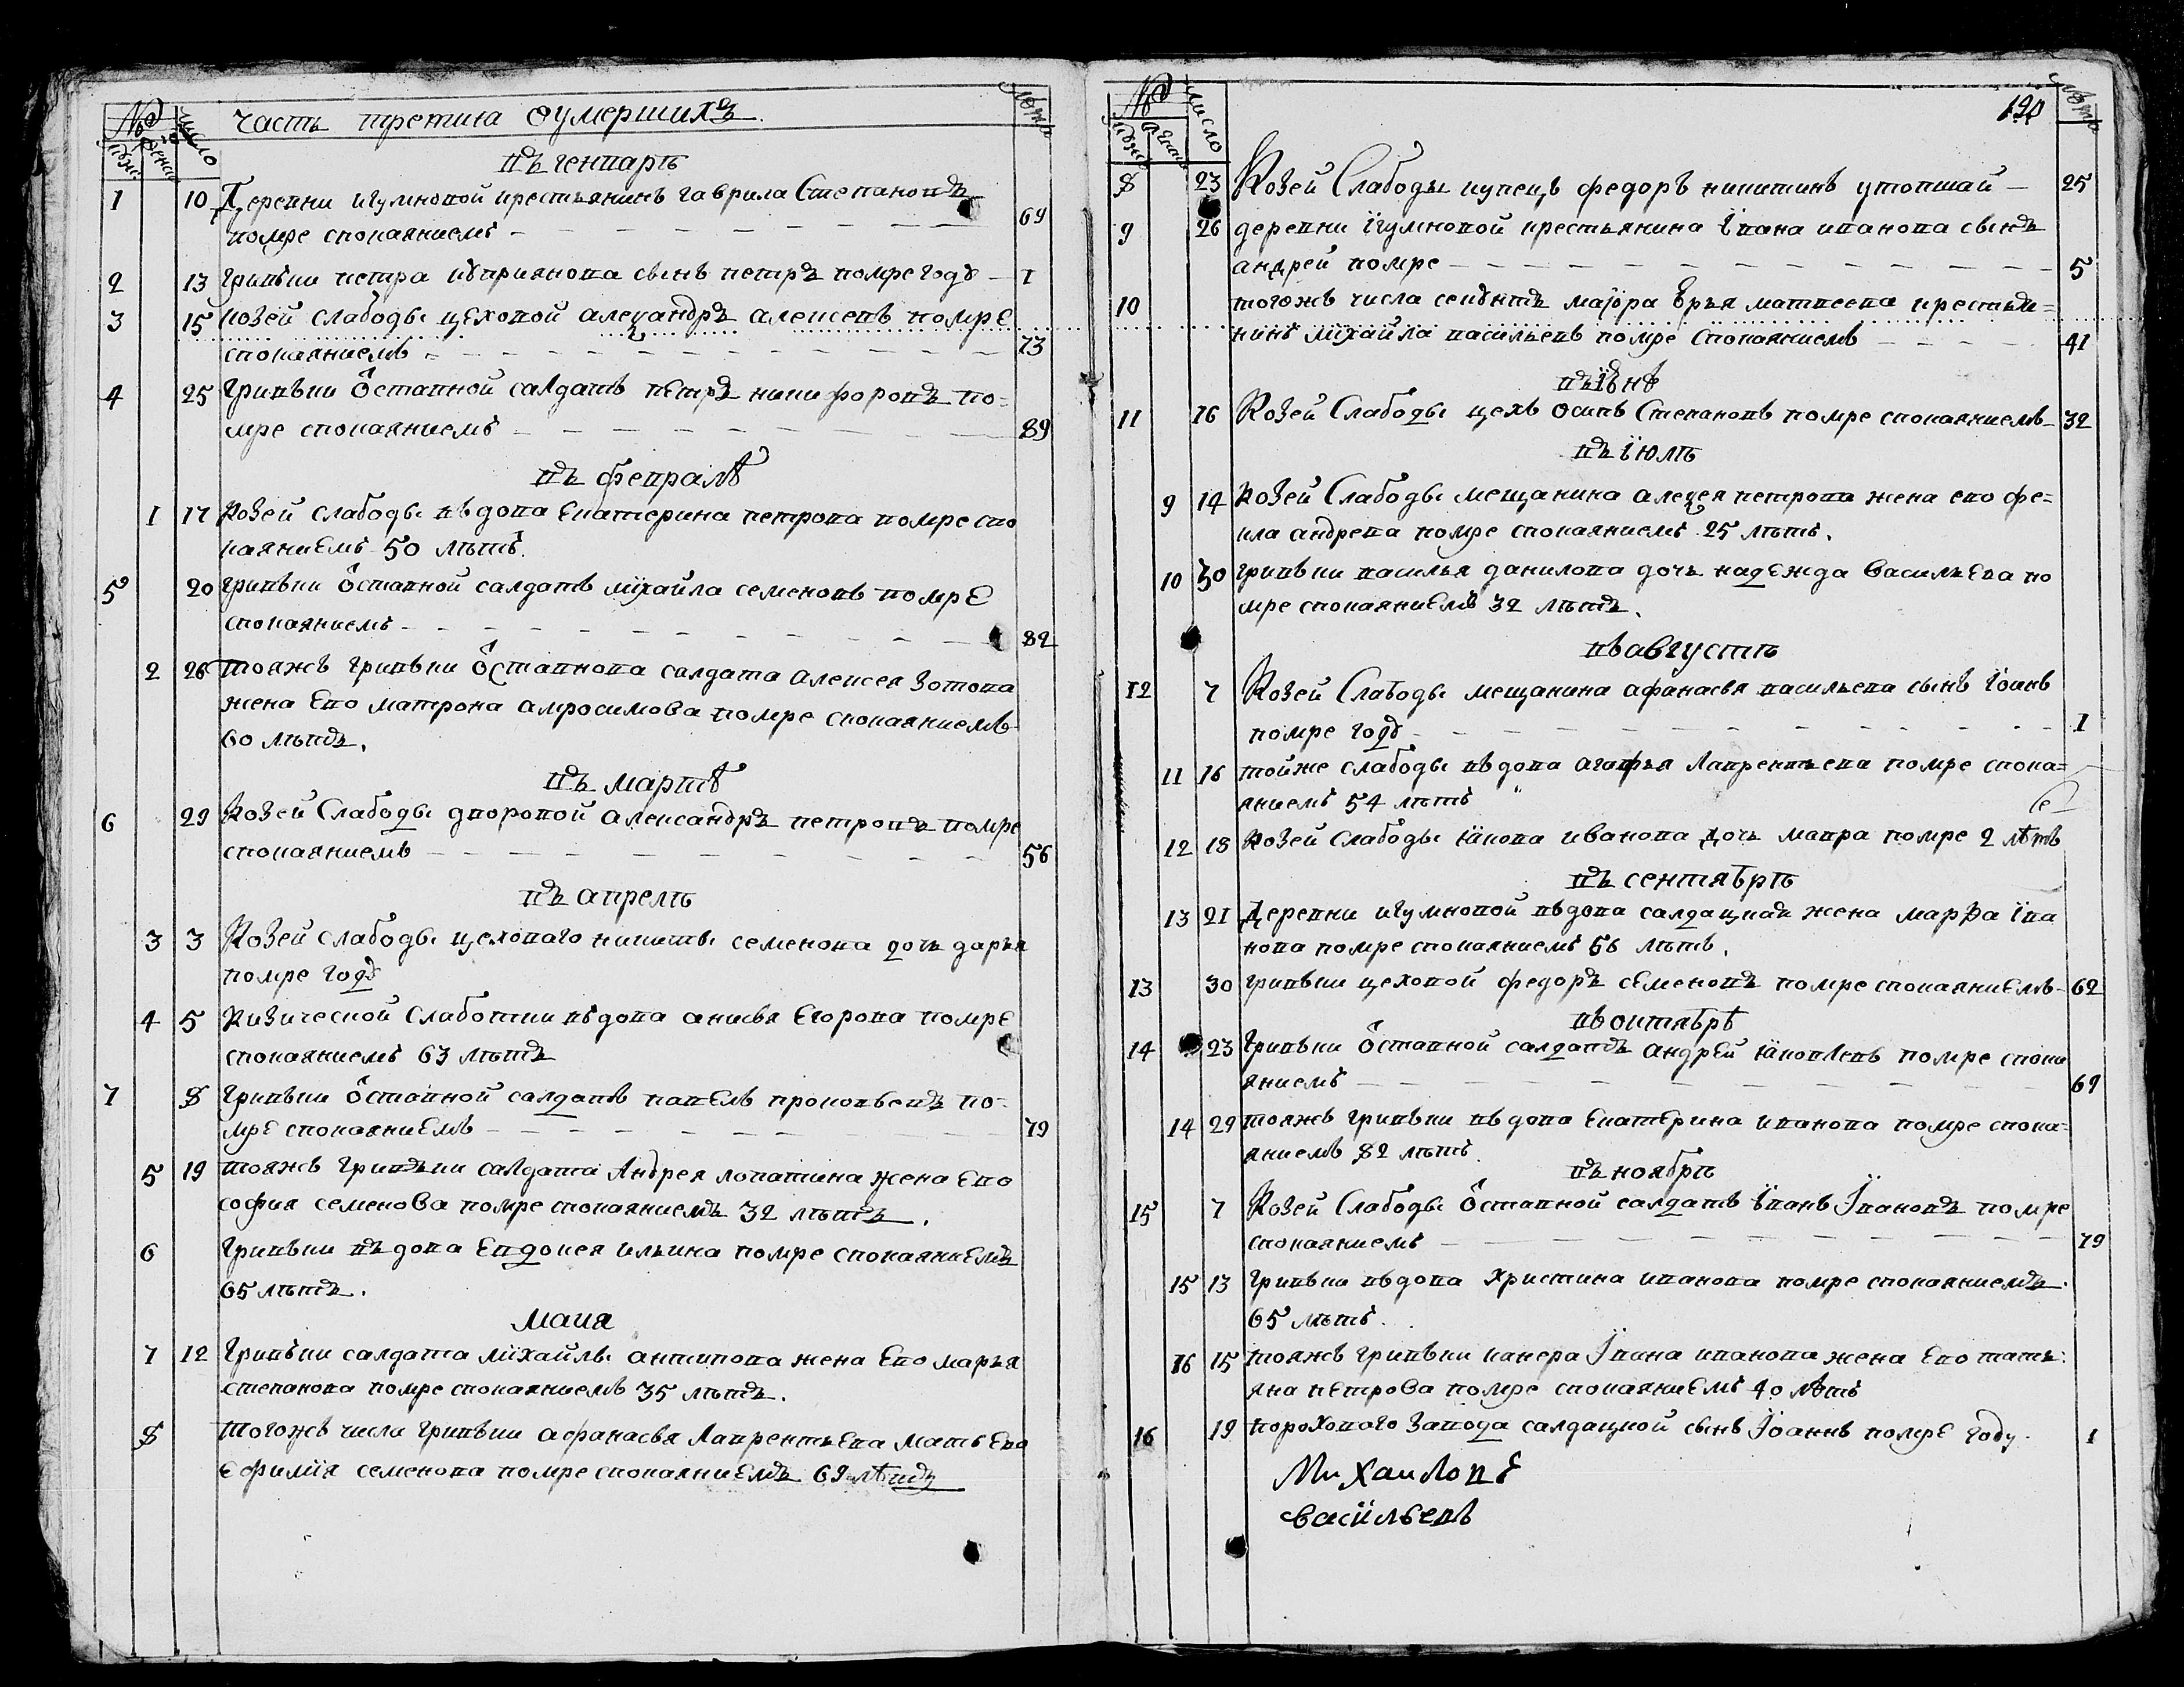 №
число
часть третиѧ оумершихъ
лѣта
муже
женс
въ генваръ
1 10 Деревни игумновой крестьянинъ гаврила Степановъ
помре спокаяниемъ 69
2 13 гривъни петра куприанова сынъ петръ помре году 1
3 15 козей слабоды цеховой алеѯандръ алексевъ помре
спокаяниемъ 73
4 25 гривъни ѿставной салдатъ петръ никифоровъ по-
мре спокаяниемъ 89
въ февралѣ
1 17 козей слабоды въдова Екатерина петрова помре спо
каяниемъ 50 лѣтъ.
5 20 гривъни ѿставной салдатъ михайла семеновъ помре
спокаяниемъ 82
2 26 тояжъ гривъни ѿставнова салдата алексея зотова
жена Ево матрона амросимова помре спокаяниемъ
60 лѣтъ.
въ мартѣ
6 29 Козей Слабоды дворовой александръ петровъ помре
спокаяниемъ 56
въ апрелѣ
3 3 Козей слабоды цеховаго никиты семенова дочь дарья
помре году
4 5 Кизической Слаботки въдова анисья Егорова помре
спокаяниемъ 63 лѣтъ
7 8 гривъни ѿставной салдатъ павелъ прокопьевъ по-
мре спокаяниемъ 79
5 19 тояжъ гривъни салдата Андрея лопатина жена Ево
софия семенова помре спокаяниемъ 32 лѣтъ.
6 гривъни въдова Евдокея ильина помре спокаяниемъ
65 лѣтъ.
маия
7 12 гривъни салдата михайлы антипова жена Ево марья
степанова помре спокаяниемъ 35 лѣтъ.
8 тогожъ числа гривъни афанасья лаврентьева мать Ево
Ефимїя семенова помре спокаяниемъ 69 лѣтъ
№
число
лѣта
муже
женс
8 23 Козей Слабоды купецъ федоръ никитинъ утопшай 25
9 26 деревни їгумновой крестьянина їѵана иванова сынъ
андрей помре 5
10 тогожъ числа секунтъ маїора юрья матвеева крестья-
нинъ михайла васильевъ помре спокаяниемъ 41
въ їюнѣ
11 16 Козей Слабоды цехъ осипъ Степановъ помре спокаяниемъ 32
въ їюлѣ
9 14 козей Слабоды мещанина алеѯея петрова жена ево фе-
кла андрева помре спокаяниемъ 25 лѣтъ.
10 30 гривъни василья данилова дочь надежда васильева по
мре спокаяниемъ 32 лѣтъ.
въ августѣ
12 7 Козей Слабоды мещанина афанасья васильева сынъ їоанъ
помре году 1
11 16 тойже слабоды въдова агафья лаврентьева помре спока-
яниемъ 54 лѣтъ
12 18 козей слабоды якова иванова дочь мавра помре 2 лѣтъ
въ сентябрѣ
13 21 Деревни игумновой въдова салдацкая жена марфа їва
нова помре спокаяниемъ 56 лѣтъ.
13 30 гривъни цеховой федоръ семеновъ помре спокаяниемъ 62
въ октябрѣ
14 23 гривъни ѿставной салдатъ андрей яковлевъ помре спока
яниемъ 69
14 29 тояжъ гривъни въдова Екатерина иванова помре спока-
яниемъ 82 лѣтъ
въ ноябрѣ
15 7 Козей Слабоды ѿставной салдатъ їванъ ївановъ помре
спокаяниемъ 79
15 13 гривъни въдова христина иванова помре спокаяниемъ
65 лѣтъ.
16 15 тояжъ гривъни канера їѵана иванова жена Ево тать-
яна петрова помре спокаяниемъ 40 лѣтъ
16 19 пороховаго завода салдацкой сынъ їоаннъ помре году 1
Михаиловъ
васильевъ